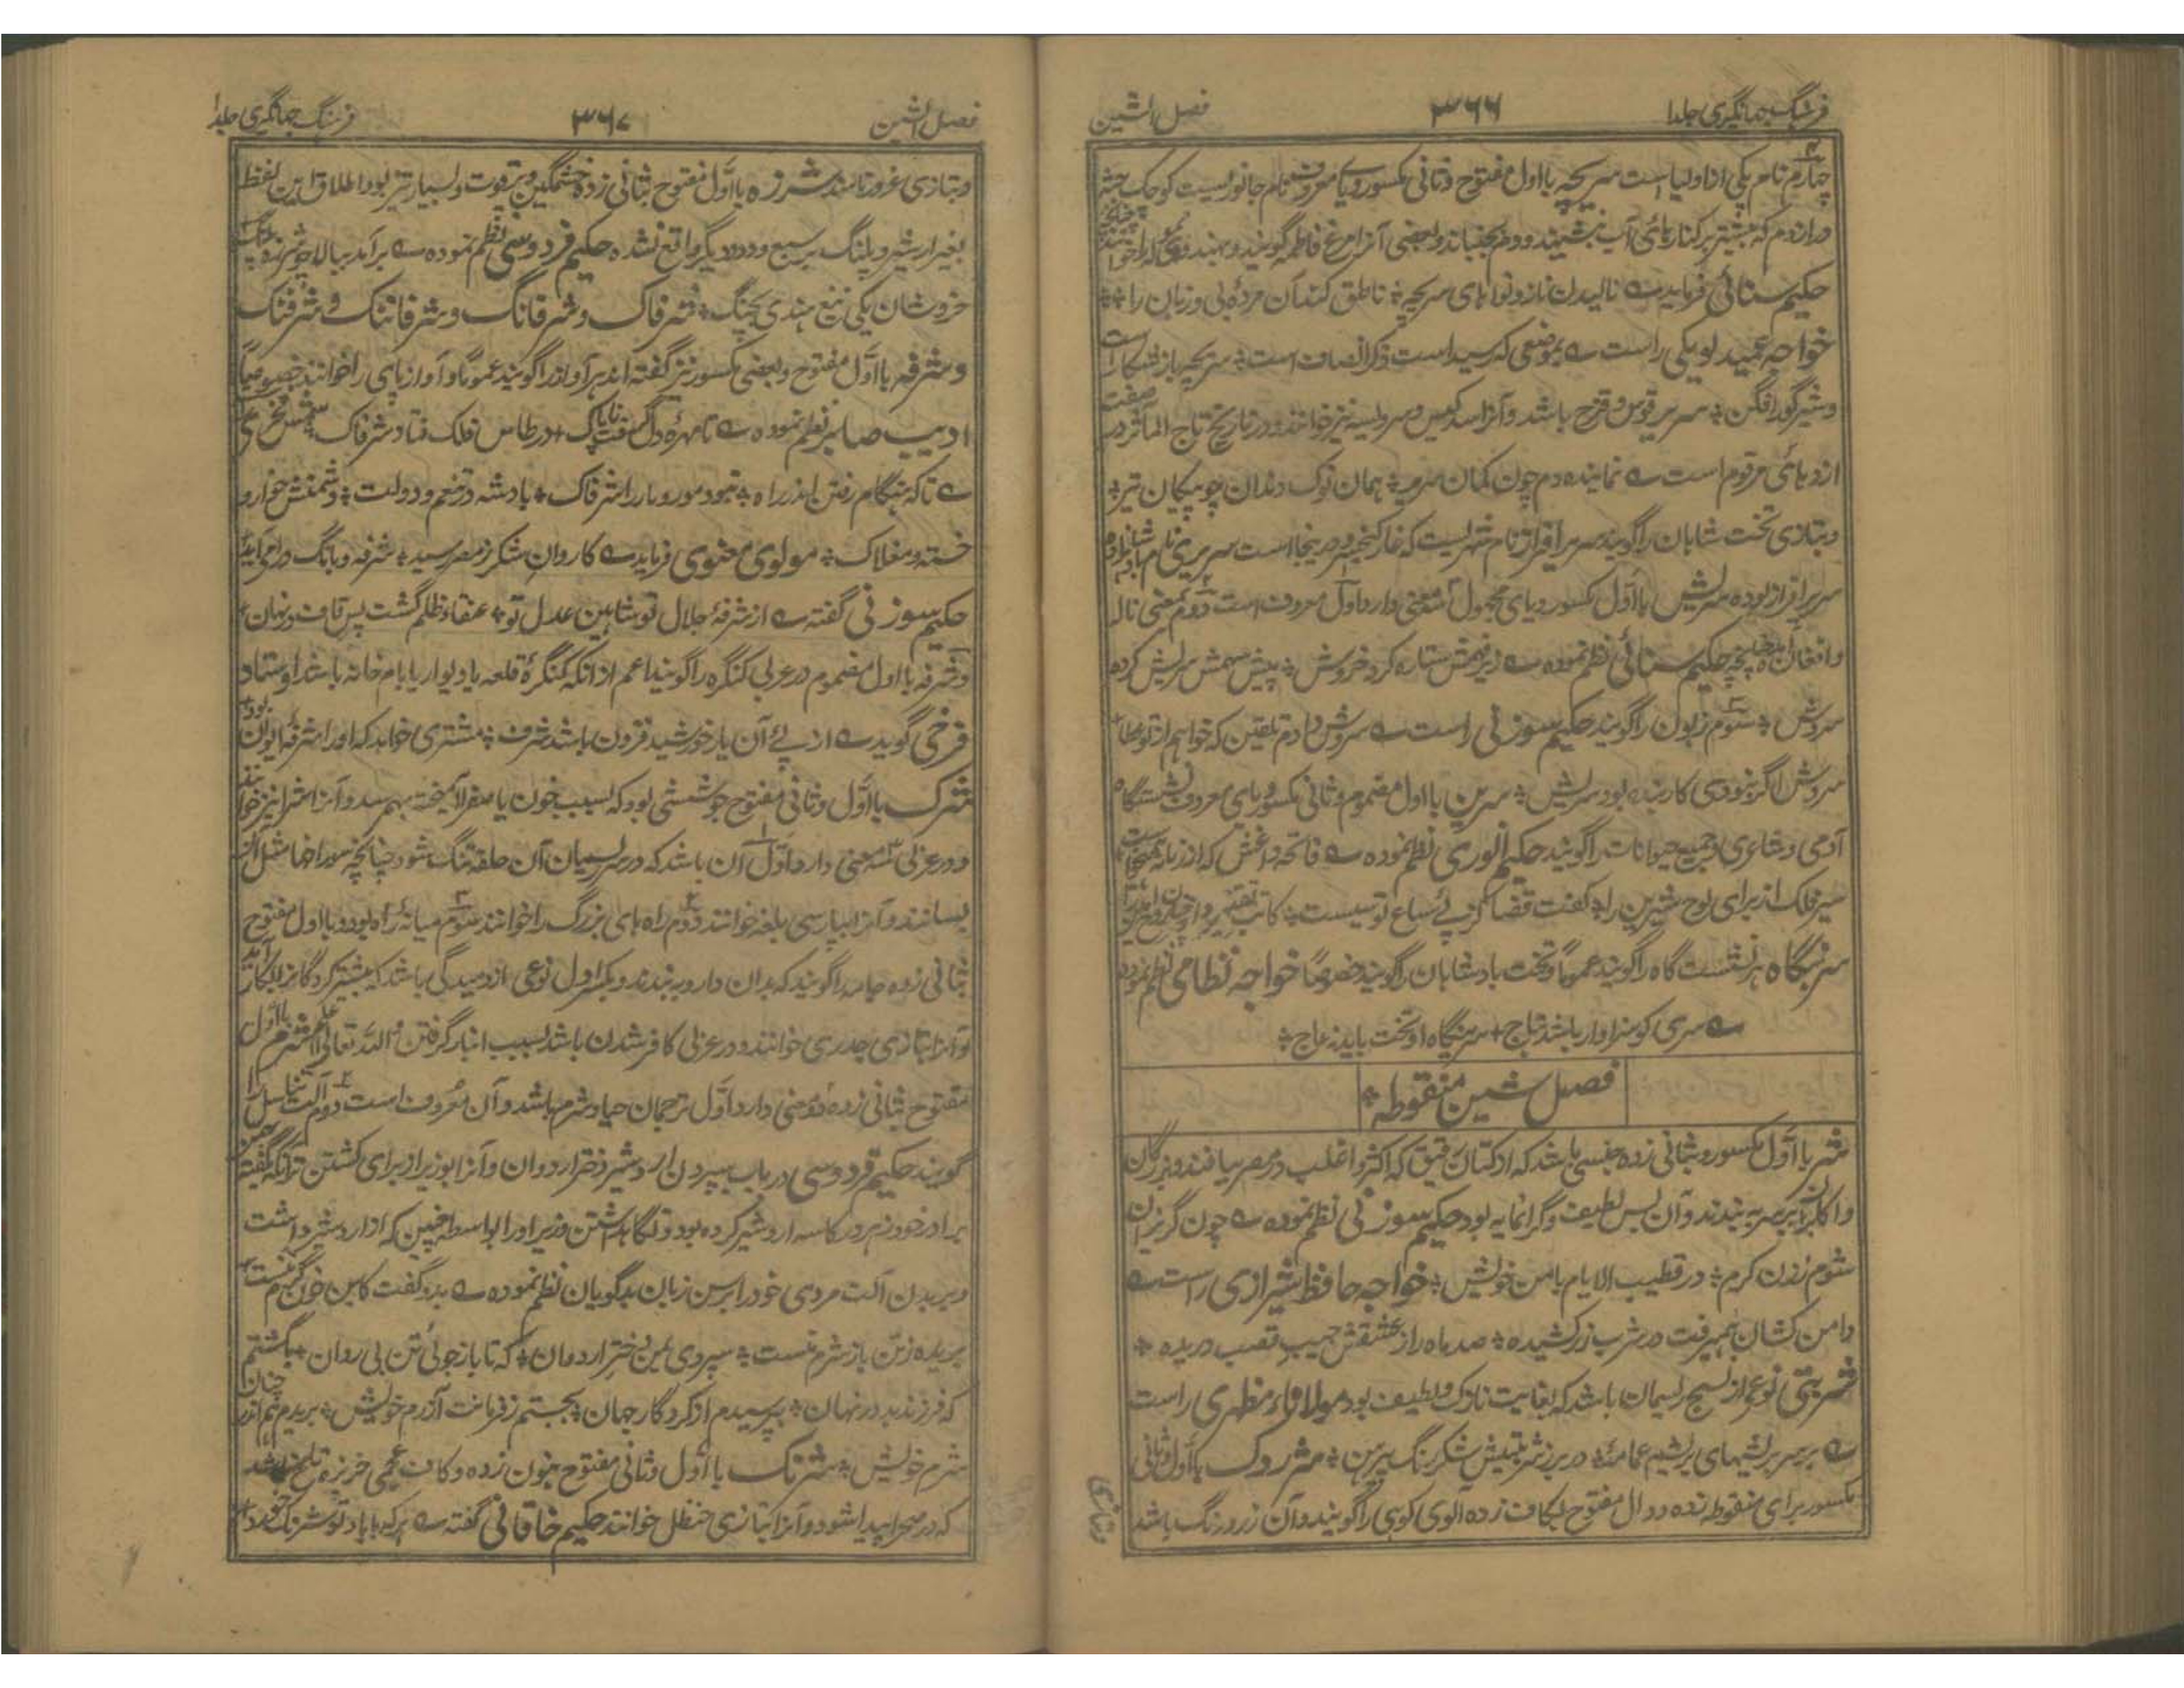 فرهنگ جهانگیری جلد ا
۳۶۶
فصل الشین
چهارم نام یکی از اولیا است سریچه با اول مفتوح و ثانی مکسور و یای معروف نام جانوریست کوچک
دراز دم که بیشتر بر کنارهای آب نشیند و دم بجنباند و بعضی آنرا مرغ فاطمه گویند و بهندی
حکیم سنائی فرماید نالیدن ناز و نواهای سریچه ناطق کند آن مردهٔ بی و زبان را
خواجه عمید لویکی راست بموضعی که رسید است ذکر انصاف است سریچه باز شکار است
و شیر گور افگن سریر قوس و قزح باشد و آنرا سدکیس و سرویسه نیز خوانند و در تاریخ تاج المآثر در صفت
اژدهائی مرقوم است نماینده دم چون کمان سریر همان نوک دندان چو پیکان تیر
و بتازی تخت شاهان را گویند سریر افراز نام شهریست که غار کیخسرو در ینجا است سریری نام
سریر افراز بوده سریش با اول مکسور و یای مجهول معنی دارد اول معروف است دوم بمعنی ناله
و افغان چنانچه حکیم سنائی نظم نموده زیر نهمش ستاره کرد خروش پیش سهمش سریش کرده
سروش سوم زبون را گویند حکیم سوزنی راست سروش دادم تلقین که خواهم از تو عطا
سروش اگر بنودی کار بنده بود سریش سرین با اول مضموم و ثانی مکسور و یای معروف نشستگاه
آدمی و شاعری و جمیع حیوانات را گویند حکیم انوری نظم نموده فاتحه داغش که از زمانه
سیر فلک از برای لوح شیرین را گفت قضا کز پئے سباع نوتیست کاتب تقدیر
سرینگاه هر نشست گاه را گویند عموماً و تخت بادشاهان را گویند خصوصاً خواجه نظامی نظم نموده
سری کو سزاوار باشد بتاج سرینگاه او تخت باید ز عاج
فصل شین منقوطه
شرب با اول مکسور و بثانی زده جنسی باشد که از کتان رقیق که اکثر و اغلب در مصر بیافند و بزرگان
و اکابر آنرا بر سر به بندند و آن بس لطیف و گرانمایه بود حکیم سوزنی نظم نموده چون گریزان
شوم ز زن کرم در قطیب الایام با من خویش خواجه حافظ شیرازی راست
دامن کشان همیرفت در شرب زر کشیده صد ماه رو ز عشقش جیب قصب دریده
شربتی نوعی از نسیج ریسمان باشد که بغایت نازک و لطیف بود مولانا مظهری راست
بر سر بریشمهای بریشم عمامه در بر شربتیش شکر رنگ پیرهن شردک با اول و ثانی
مکسور برای منقوطه زده و دال مفتوح بکاف زده آلوی کوهی را گویند و آن زرد رنگ باشد
و بتازی
فرهنگ جهانگیری جلد ا
۳۶۷
فصل الشین
و بتازی غرور نامند شرزه با اول مفتوح بثانی زده خشمگین و بقوت و بسیار تیز بود اطلاق این لفظ
بغیر از شیر و پلنگ بر سبع و دد دیگر واقع نشده حکیم فردوسی نظم نموده بر آمد ببالا چو شرزه پلنگ
خروشان یکی تیغ هندی بچنگ شرفاک و شرفانگ و شرفانک و شرفنک
و شرفه با اول مفتوح و بعضی مکسور نیز گفته اند هر آواز را گویند عموماً و آواز پای را خوانند خصوصاً
ادیب صابر نظم نموده تا مهرهٔ دل گرفت ناپاک در طاس فلک فتاد شرفاک شمس فخری
تا که هنگام رفتن اندر راه نبود مور و مار را شرفاک بادشه در تنعم و دولت دشمنش خوار و
خسته و مغلاک مولوی معنوی فرماید کاروان شکر ز مصر رسید شرفه و بانگ درای آید
حکیم سوزنی گفته از شرفهٔ جلال تو شاهین عدل تو عنقاء ظلم گشت پس قاف در نهان
و شرفه با اول مضموم در عربی کنگره را گویند اعم از آنکه کنگرهٔ قلعه یا دیوار یا بام خانه باشد اوستاد
فرخی گوید از پئے آن یار خورشید فزون باشد شرف مشتری خواهد که او را شرفهٔ ایوان بود
شرک با اول و ثانی مفتوح جوششی بود که بسبب خون با صفرا آمیخته بهم رسد و آنرا شرا نیز خوانند
و در عربی سه معنی دارد اول آن باشد که در سر ریسمان آن حلقه تنگ شود چنانچه سوراخها مثل آن
بسا نند و آنرا بپارسی بلغه خوانند دوم راه های بزرگ را خوانند سوم میانهٔ راه بود و با اول مفتوح
بثانی زده جامه را گویند که بدان دارو به بندند و بکسر اول نوعی از دمیدگی باشد که بیشتر کودکان را بیکبار آید
و آنرا بتازی جدری خوانند و در عربی کافر شدن باشد بسبب انباز گرفتن والله تعالی اعلم شرم با اول
مفتوح بثانی زده دو معنی دارد اول ترجمان حیا و شرم باشد و آن معروف است دوم آلت تناسل را
گویند حکیم فردوسی در باب سپردن اردشیر دختر اردوان و آنرا بوزیر از برای کشتن ترا آنکه گفته
برادر خود زهر در کاسه اردشیر کرده بود و نگاهداشتن وزیر او را بواسطه جنین که از اردشیر داشت
و بریدن آلت مردی خود را پس زبان بدگویان نظم نموده بدو گفت کاین خون گرم منست
بریده ز بن باز شرم منست سپردی بمن دختر اردوان که تا باز جوئی تن بی روان بکشتم
که فرزند بد در نهان بترسیدم از کردگار جهان بجستم ز فرمانت آزرم خویش بریدم هم اندر زمان
شرم خویش شرنگ با اول و ثانی مفتوح بنون زده و کاف عجمی خربزهٔ تلخ باشد
که در صحرا پیدا شود و آنرا بتازی حنظل خوانند حکیم خاقانی گفته هر که با یاد تو شرنگ خورد